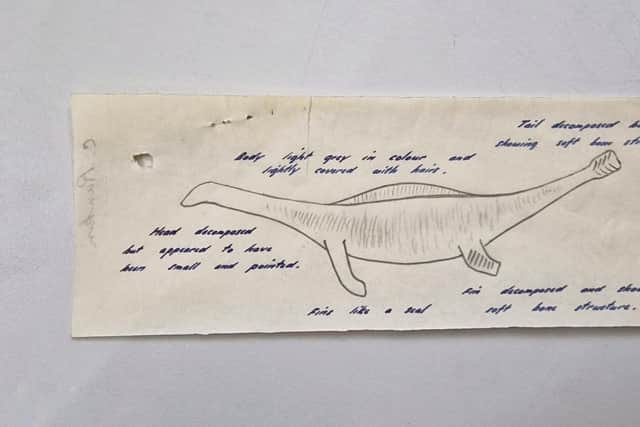 Tail decomposed
showing soft bone
Body light grey in colour and
lightly covered with hairs.
Head decomposed
but appeared to have
been small and pointed.
Fin decomposed and
Fins like a seal
soft bone structure.